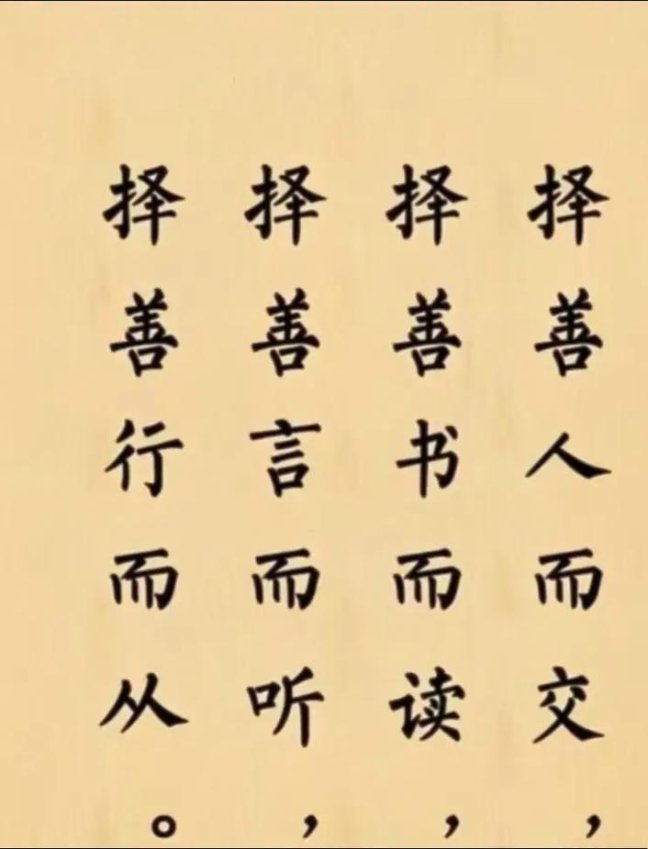 择善人而交，
择善书而读，
择善言而听，
择善行而从。